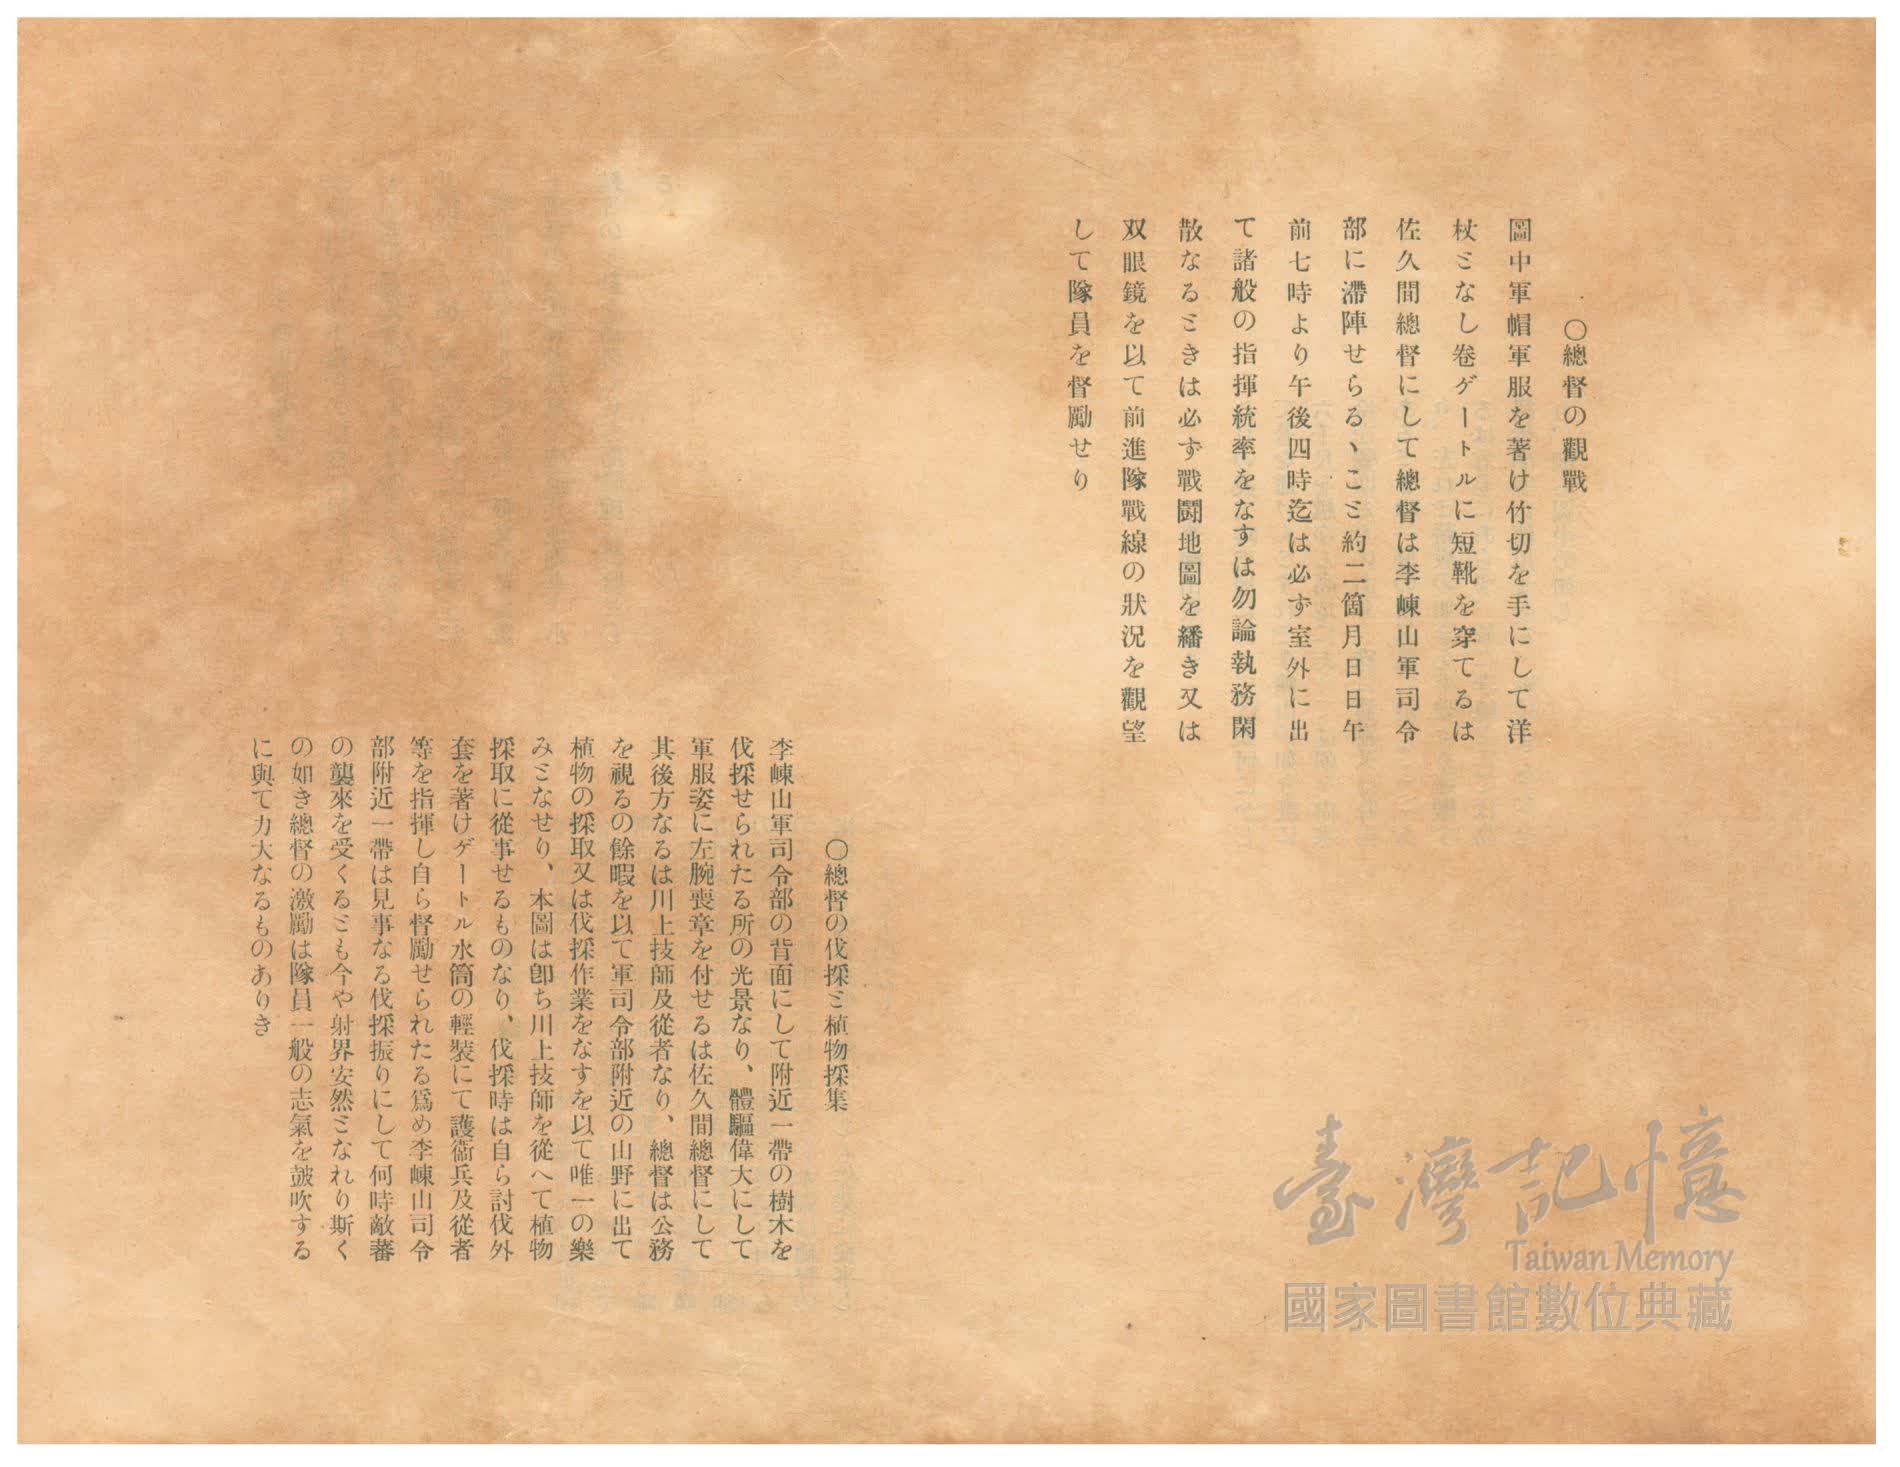 〇總督の觀戰
圖中軍帽軍服を著け竹切を手にして洋
杖ミなし卷ゲートルに短靴を穿てるは
佐久間總督にして總督は李崠山軍司令
部に滯陣せらるヽこミ約二箇月日日午
前七時より午後四時迄は必ず室外に出
て諸般の指揮統率をなすは勿論執務閑
散なるミきは必ず戰鬪地圖を繙き又は
双眼鏡を以て前進隊戰線の狀況を觀望
して隊員を督勵せり
〇總督の伐採ミ植物採集
李崠山軍司令部の背面にして附近一帶の樹木を
伐採せられたる所の光景なり、體軀偉大にして
軍服姿に左腕喪章を付せるは佐久間總督にして
其後方なるは川上技師及從者なり、總督は公務
を視るの餘暇を以て軍司令部附近の山野に出て
植物の採取又は伐採作業をなすを以て唯一の樂
みミなせり、本圖は卽ち川上技師を從へて植物
採取に從事せるものなり、伐採時は自ら討伐外
套を著けゲートル水筒の輕裝にて護衞兵及從者
等を指揮し自ら督勵せられたる爲め李崠山司令
部附近一帶は見事なる伐採振りにして何時敵蕃
の襲來を受くるミも今や射界安然ミなれり斯く
の如き總督の激勵は隊員一般の志氣を皷吹する
に與て力大なるものありき
臺灣記憶
Taiwan Memory
國家圖書館數位典藏